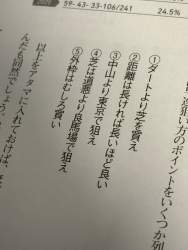 59-43-33-106/241
24.5%
狙い方のポイントをいくつか列
①ダートより芝を買え
②距離は長ければ長いほど良い
③中山より東京で狙え
④芝は道悪より良馬場で狙え
⑤外枠はむしろ買い
以上をアタマに入れておけば、
んだも同然でしょう。